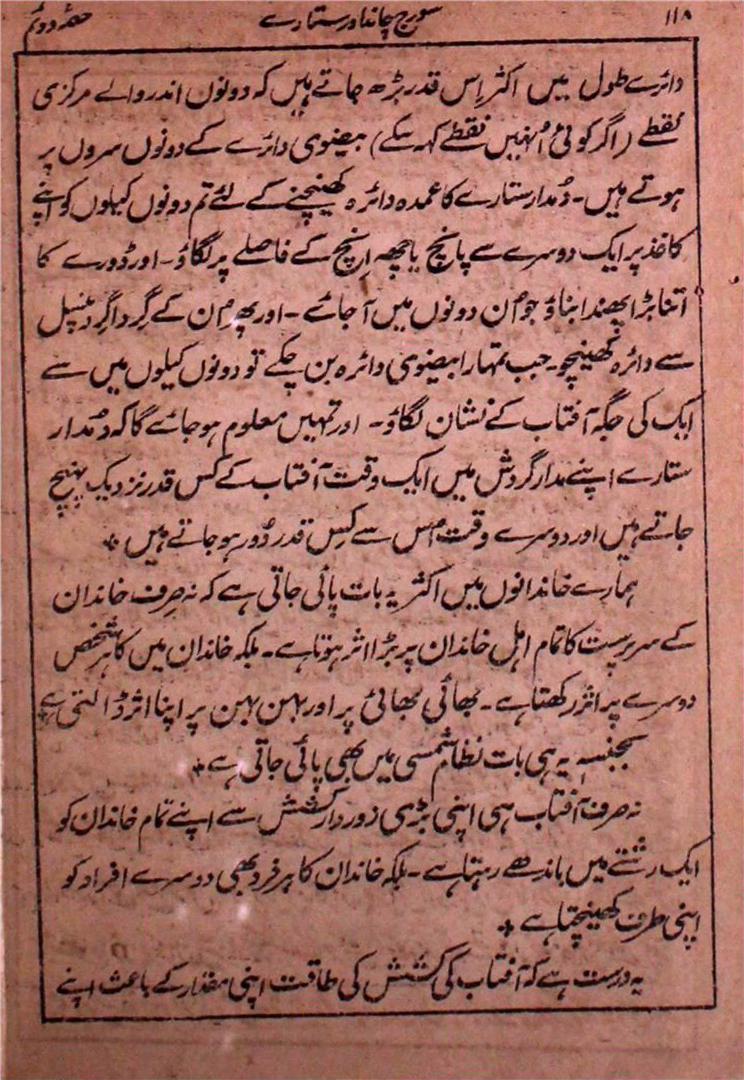 ۱۱۸ سورج چاند اور ستارے حصہ دوئم
دائرے طول میں اکثر اِس قدر بڑھ جاتے ہیں کہ دونوں اندر والے مرکزی
نقطے (اگر کوئی اُنہیں نقطے کہہ سکے) بیضوی دائرے کے دونوں سروں پر
ہوتے ہیں۔ دُمدار ستارے کا عمدہ دائرہ کھینچنے کے لئے تم دونوں کیلوں کو اپنے
کاغذ پر ایک دوسرے سے پانچ یا چھہ اِنچ کے فاصلے پر لگاؤ۔ اور ڈورے کا
اتنا بڑا پھندا بناؤ جو اُن دونوں میں آ جائے۔ اور پھر اُن کے گِرداگِرد پنسل
سے دائرہ کھینچو۔ جب تمہارا بیضوی دائرہ بن چکے تو دونوں کیلوں میں سے
ایک کی جگہ آفتاب کے نشان لگاؤ۔ اور تمہیں معلوم ہو جائے گا کہ دُمدار
ستارے اپنے مدار گردش میں ایک وقت آفتاب کے کس قدر نزدیک پہنچ
جاتے ہیں اور دوسرے وقت اُس سے کِس قدر دُور ہو جاتے ہیں ٭
ہمارے خاندانوں میں اکثر یہ بات پائی جاتی ہے کہ نہ صرف خاندان
کے سرپرست کا تمام اہل خاندان پر بڑا اثر ہوتا ہے۔ بلکہ خاندان میں کا ہر شخص
دوسرے پر اثر رکھتا ہے۔ بھائی بھائی پر اور بہن بہن پر اپنا اثر ڈالتی ہے٭
بجنسہٖ یہ ہی بات نظام شمسی میں بھی پائی جاتی ہے٭
نہ صرف آفتاب ہی اپنی بڑی زور دار کشش سے اپنے تمام خاندان کو
ایک رشتے میں باندھے رہتا ہے۔ بلکہ خاندان کا ہر فرد بھی دوسرے افراد کو
اپنی طرف کھینچتا ہے ٭
یہ درست ہے کہ آفتاب کی کشش کی طاقت اپنی مقدار کے باعث اپنے